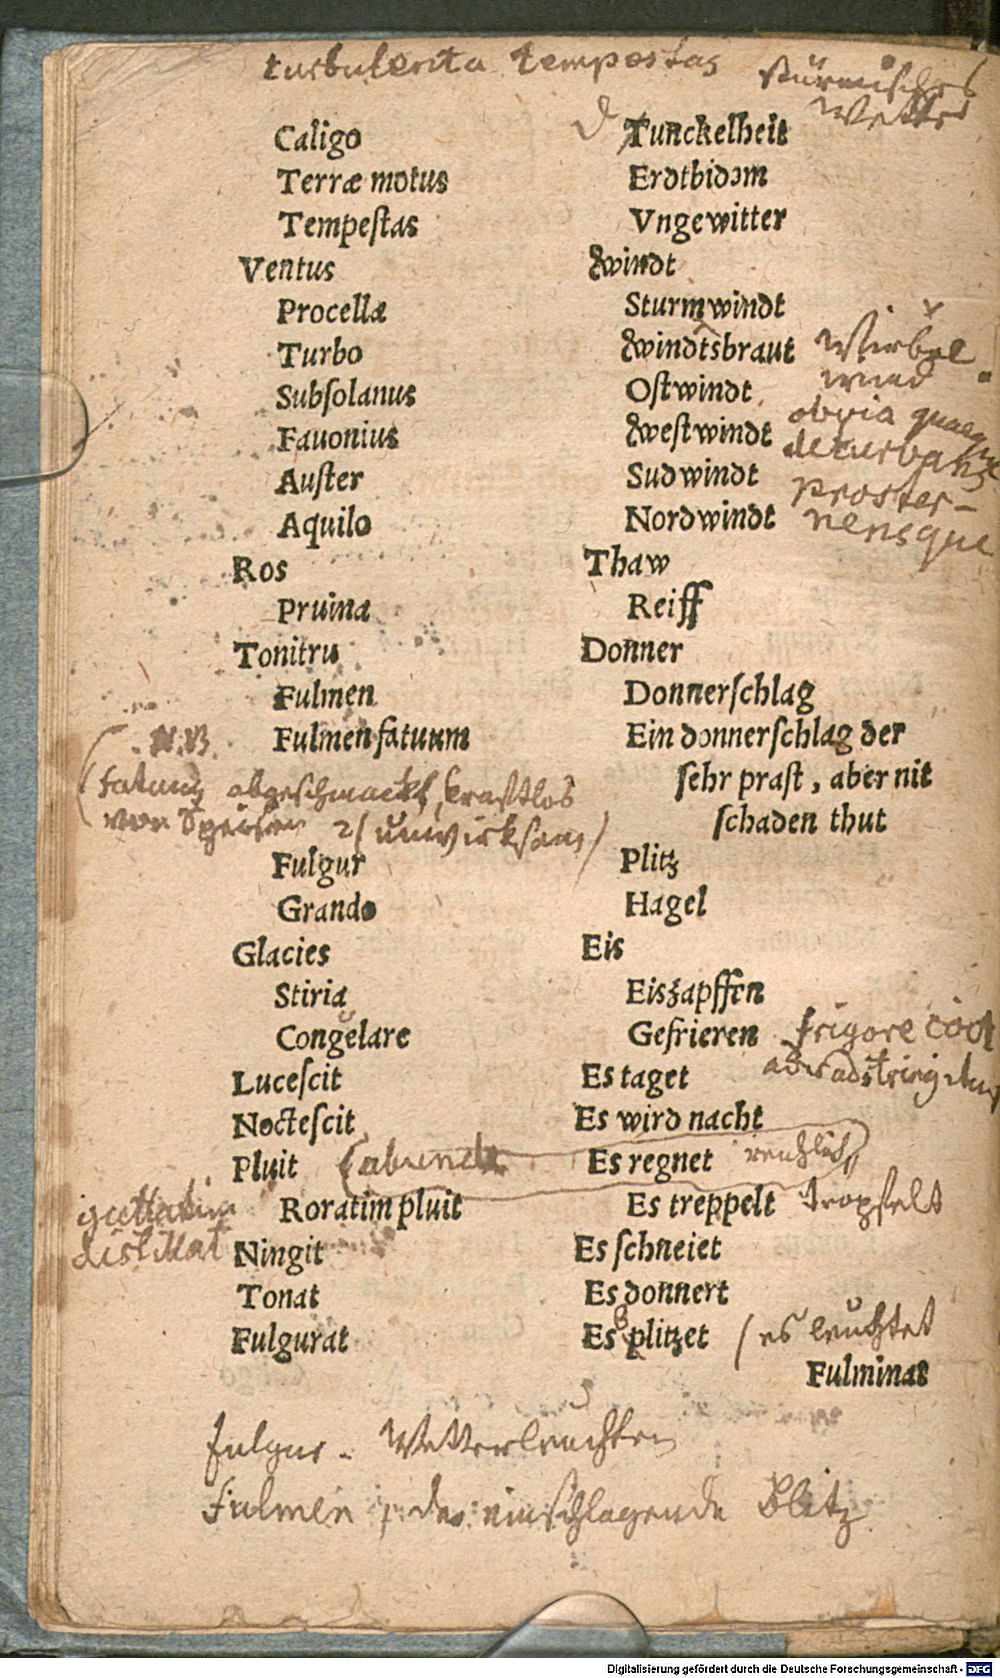 turbulenta tempestas stürmisches
Wetter
Caligo Tunckelheit
Terræ motus Erdtbidem
Tempeſtas Vngewitter
Ventus Windt
Procella Sturmwindt
Turbo Windtsbraut Wirbel
wind
Subſolanus Oſtwindt obvia quaeque
Fauonius Weſtwindt deturbans
Auſter Sudwindt proster-
Aquilo Nordwindt nensque
Ros Thaw
Pruina Reiff
Tonitru Donner
Fulmen Donnerſchlag
N.B. Fulmen fatuum Ein donnerſchlag der
ſehr praſt, aber nit
ſchaden thut
(fatuus abgeschmackt, kraftlos
von Speisen 2/ unwirksam)
Fulgur Plitz
Grando Hagel
Glacies Eis
Stiria Eiszapffen
Congelare Gefrieren frigore
Luceſcit Es taget
Nocteſcit Es wird nacht
Pluit Es regnet
guttatim Roratim pluit Es treppelt tropfelt
distillat Ningit Es ſchneiet
Tonat Es donnert
Fulgurat Es plitzet / es leuchtet
Fulminat
fulgur - Wetterleuchten
Fulmen, der einschlagende Blitz
Digitalisierung gefördert durch die Deutsche Forschungsgemeinschaft - DFG